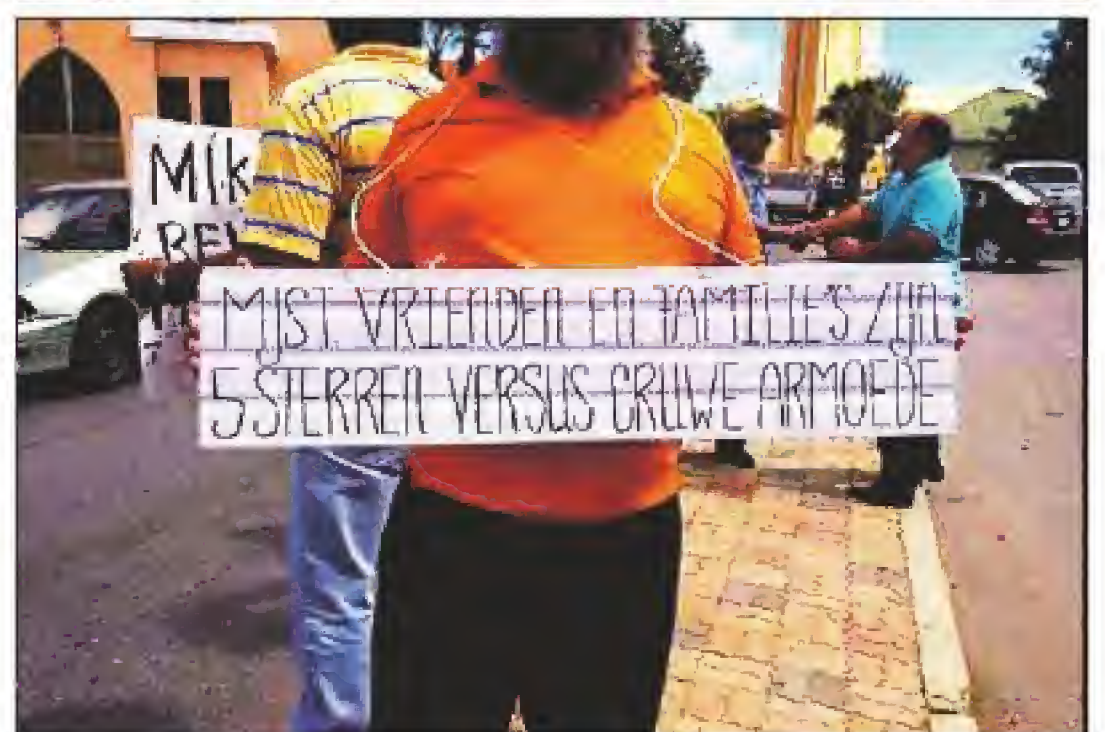 MIK
REI
MIST VRIENDEN EN FAMILIE'S ZIJN
5 STERREN VERSUS GRUWE ARMOEDE